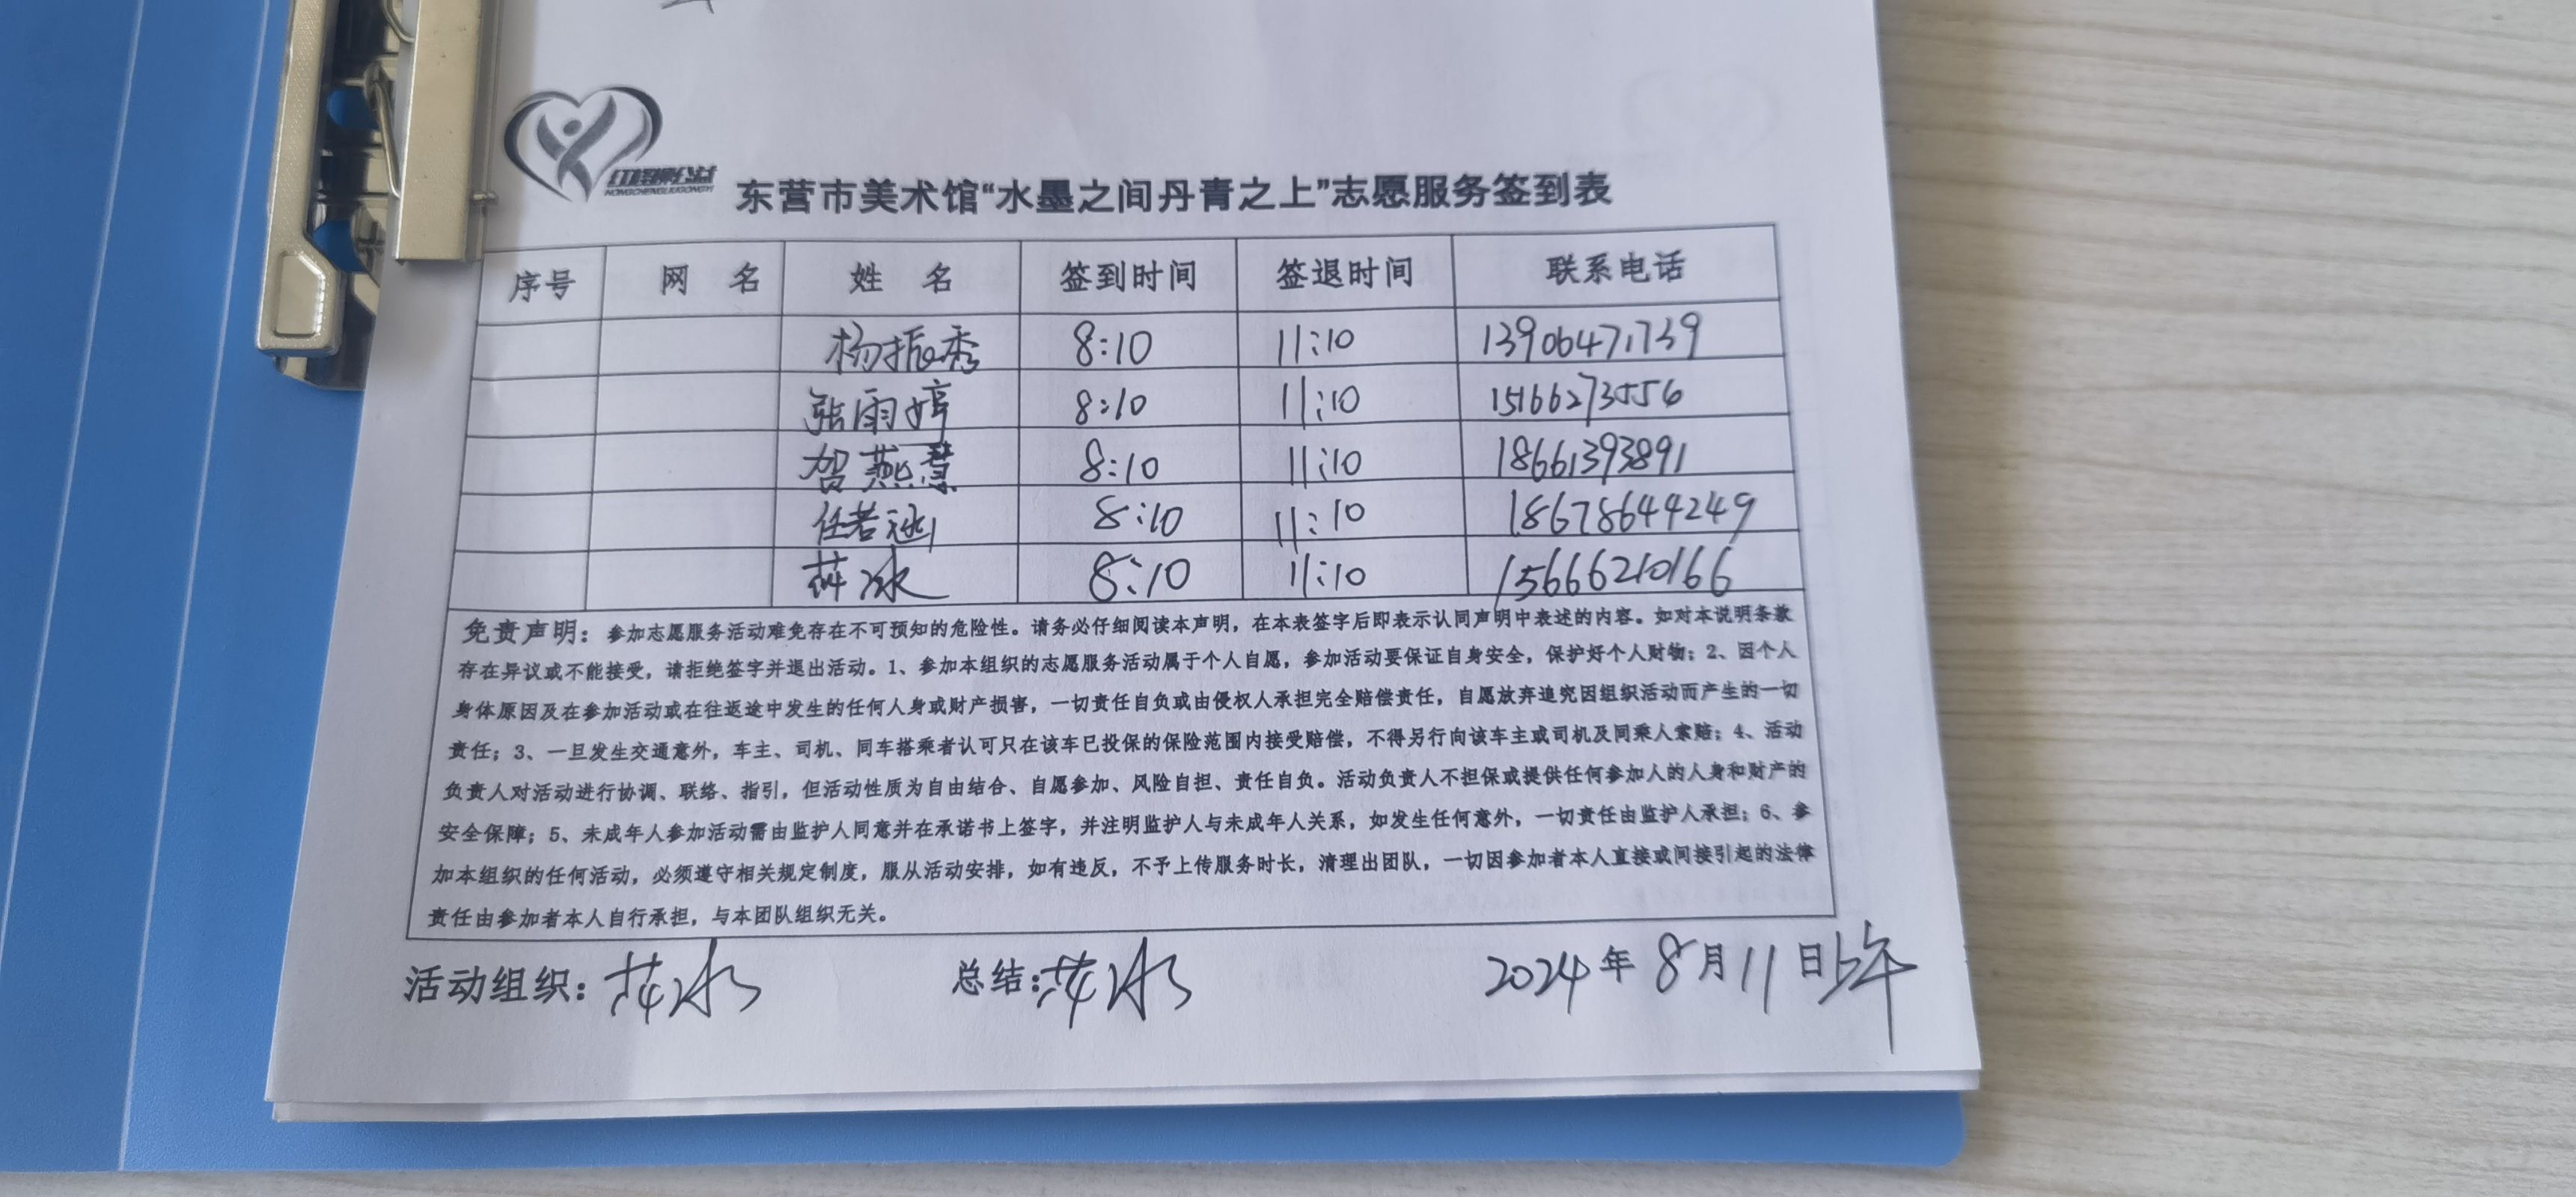 HONGCHENGLIUGONGYI
东营市美术馆“水墨之间丹青之上”志愿服务签到表
序号 网 名 姓 名 签到时间 签退时间 联系电话
杨振秀 8:10 11:10 13906471739
张雨婷 8:10 11:10 15166273556
贺燕慧 8:10 11:10 18661393891
任若涵 8:10 11:10 18678644249
冰 8:10 11:10 15666210166
免责声明：参加志愿服务活动难免存在不可预知的危险性。请务必仔细阅读本声明，在本表签字后即表示认同声明中表述的内容。如对本说明条款
存在异议或不能接受，请拒绝签字并退出活动。1、参加本组织的志愿服务活动属于个人自愿，参加活动要保证自身安全，保护好个人财物；2、因个人
身体原因及在参加活动或在往返途中发生的任何人身或财产损害，一切责任自负或由侵权人承担完全赔偿责任，自愿放弃追究因组织活动而产生的一切
责任；3、一旦发生交通意外，车主、司机、同车搭乘者认可只在该车已投保的保险范围内接受赔偿，不得另行向该车主或司机及同乘人索赔；4、活动
负责人对活动进行协调、联络、指引，但活动性质为自由结合、自愿参加、风险自担、责任自负。活动负责人不担保或提供任何参加人的人身和财产的
安全保障；5、未成年人参加活动需由监护人同意并在承诺书上签字，并注明监护人与未成年人关系，如发生任何意外，一切责任由监护人承担；6、参
加本组织的任何活动，必须遵守相关规定制度，服从活动安排，如有违反，不予上传服务时长，清理出团队，一切因参加者本人直接或间接引起的法律
责任由参加者本人自行承担，与本团队组织无关。
活动组织：冰 总结：冰 2024年8月11日上午